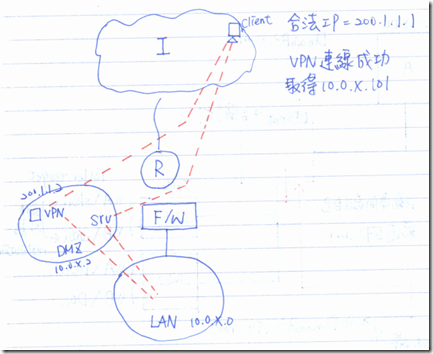 client
合法IP=200.1.1.1
I
VPN連線成功
取得10.0.X.101
R
200.1.1.2
VPN
SRV
F/W
DMZ
10.0.X.2
LAN 10.0.X.0